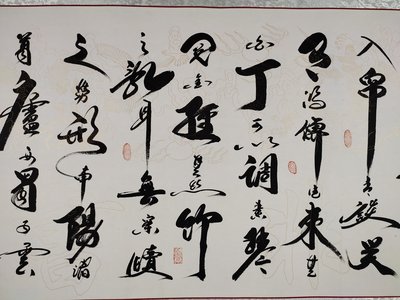 入帘青談笑
有鴻儒往來無
白丁可以調素琴
閱金經無絲竹
之亂耳無案牘
之勞形南陽諸
葛廬西蜀子雲